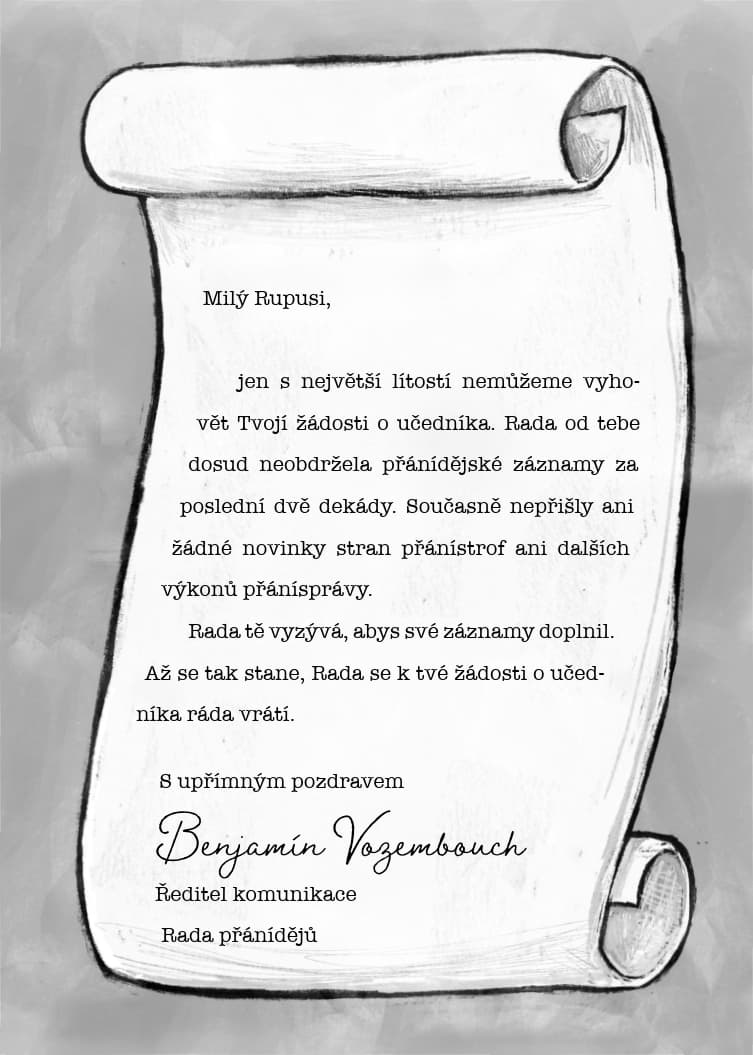 Milý Rupusi,
jen s největší lítostí nemůžeme vyho-
vět Tvojí žádosti o učedníka. Rada od tebe
dosud neobdržela přánídějské záznamy za
poslední dvě dekády. Současně nepřišly ani
žádné novinky stran přánístrof ani dalších
výkonů přánísprávy.
Rada tě vyzývá, abys své záznamy doplnil.
Až se tak stane, Rada se k tvé žádosti o učed-
níka ráda vrátí.
S upřímným pozdravem
Benjamín Vozembouch
Ředitel komunikace
Rada přánídějů